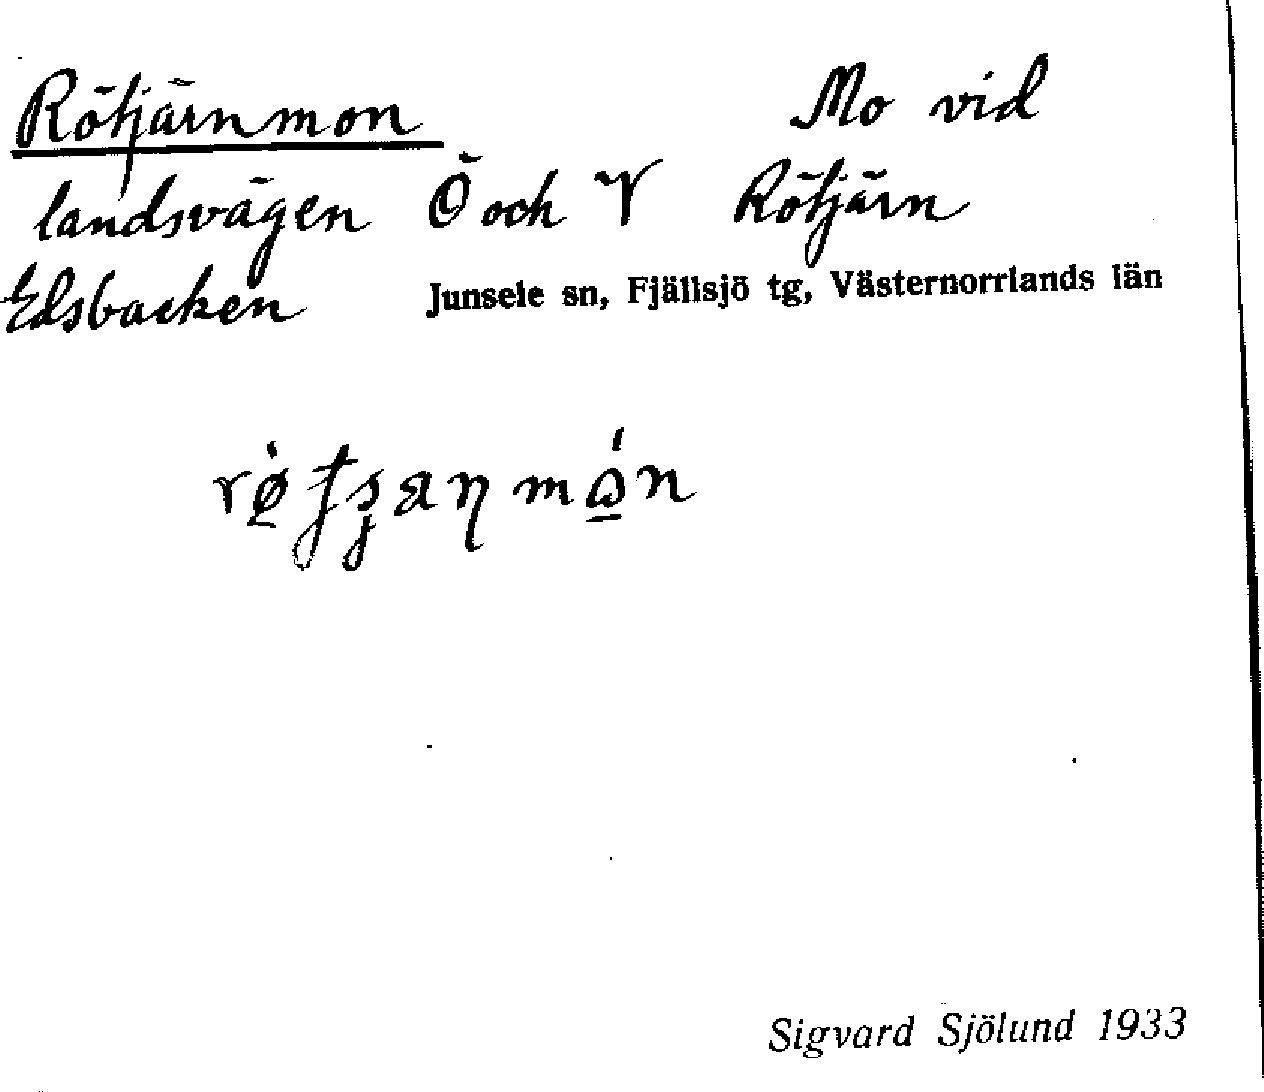 Rötjärnmon Mo vid
landsvägen Ö och V Rötjärn
Edsbacken Junsele sn, Fjällsjö tg, Västernorrlands län
Sigvard Sjölund 1933